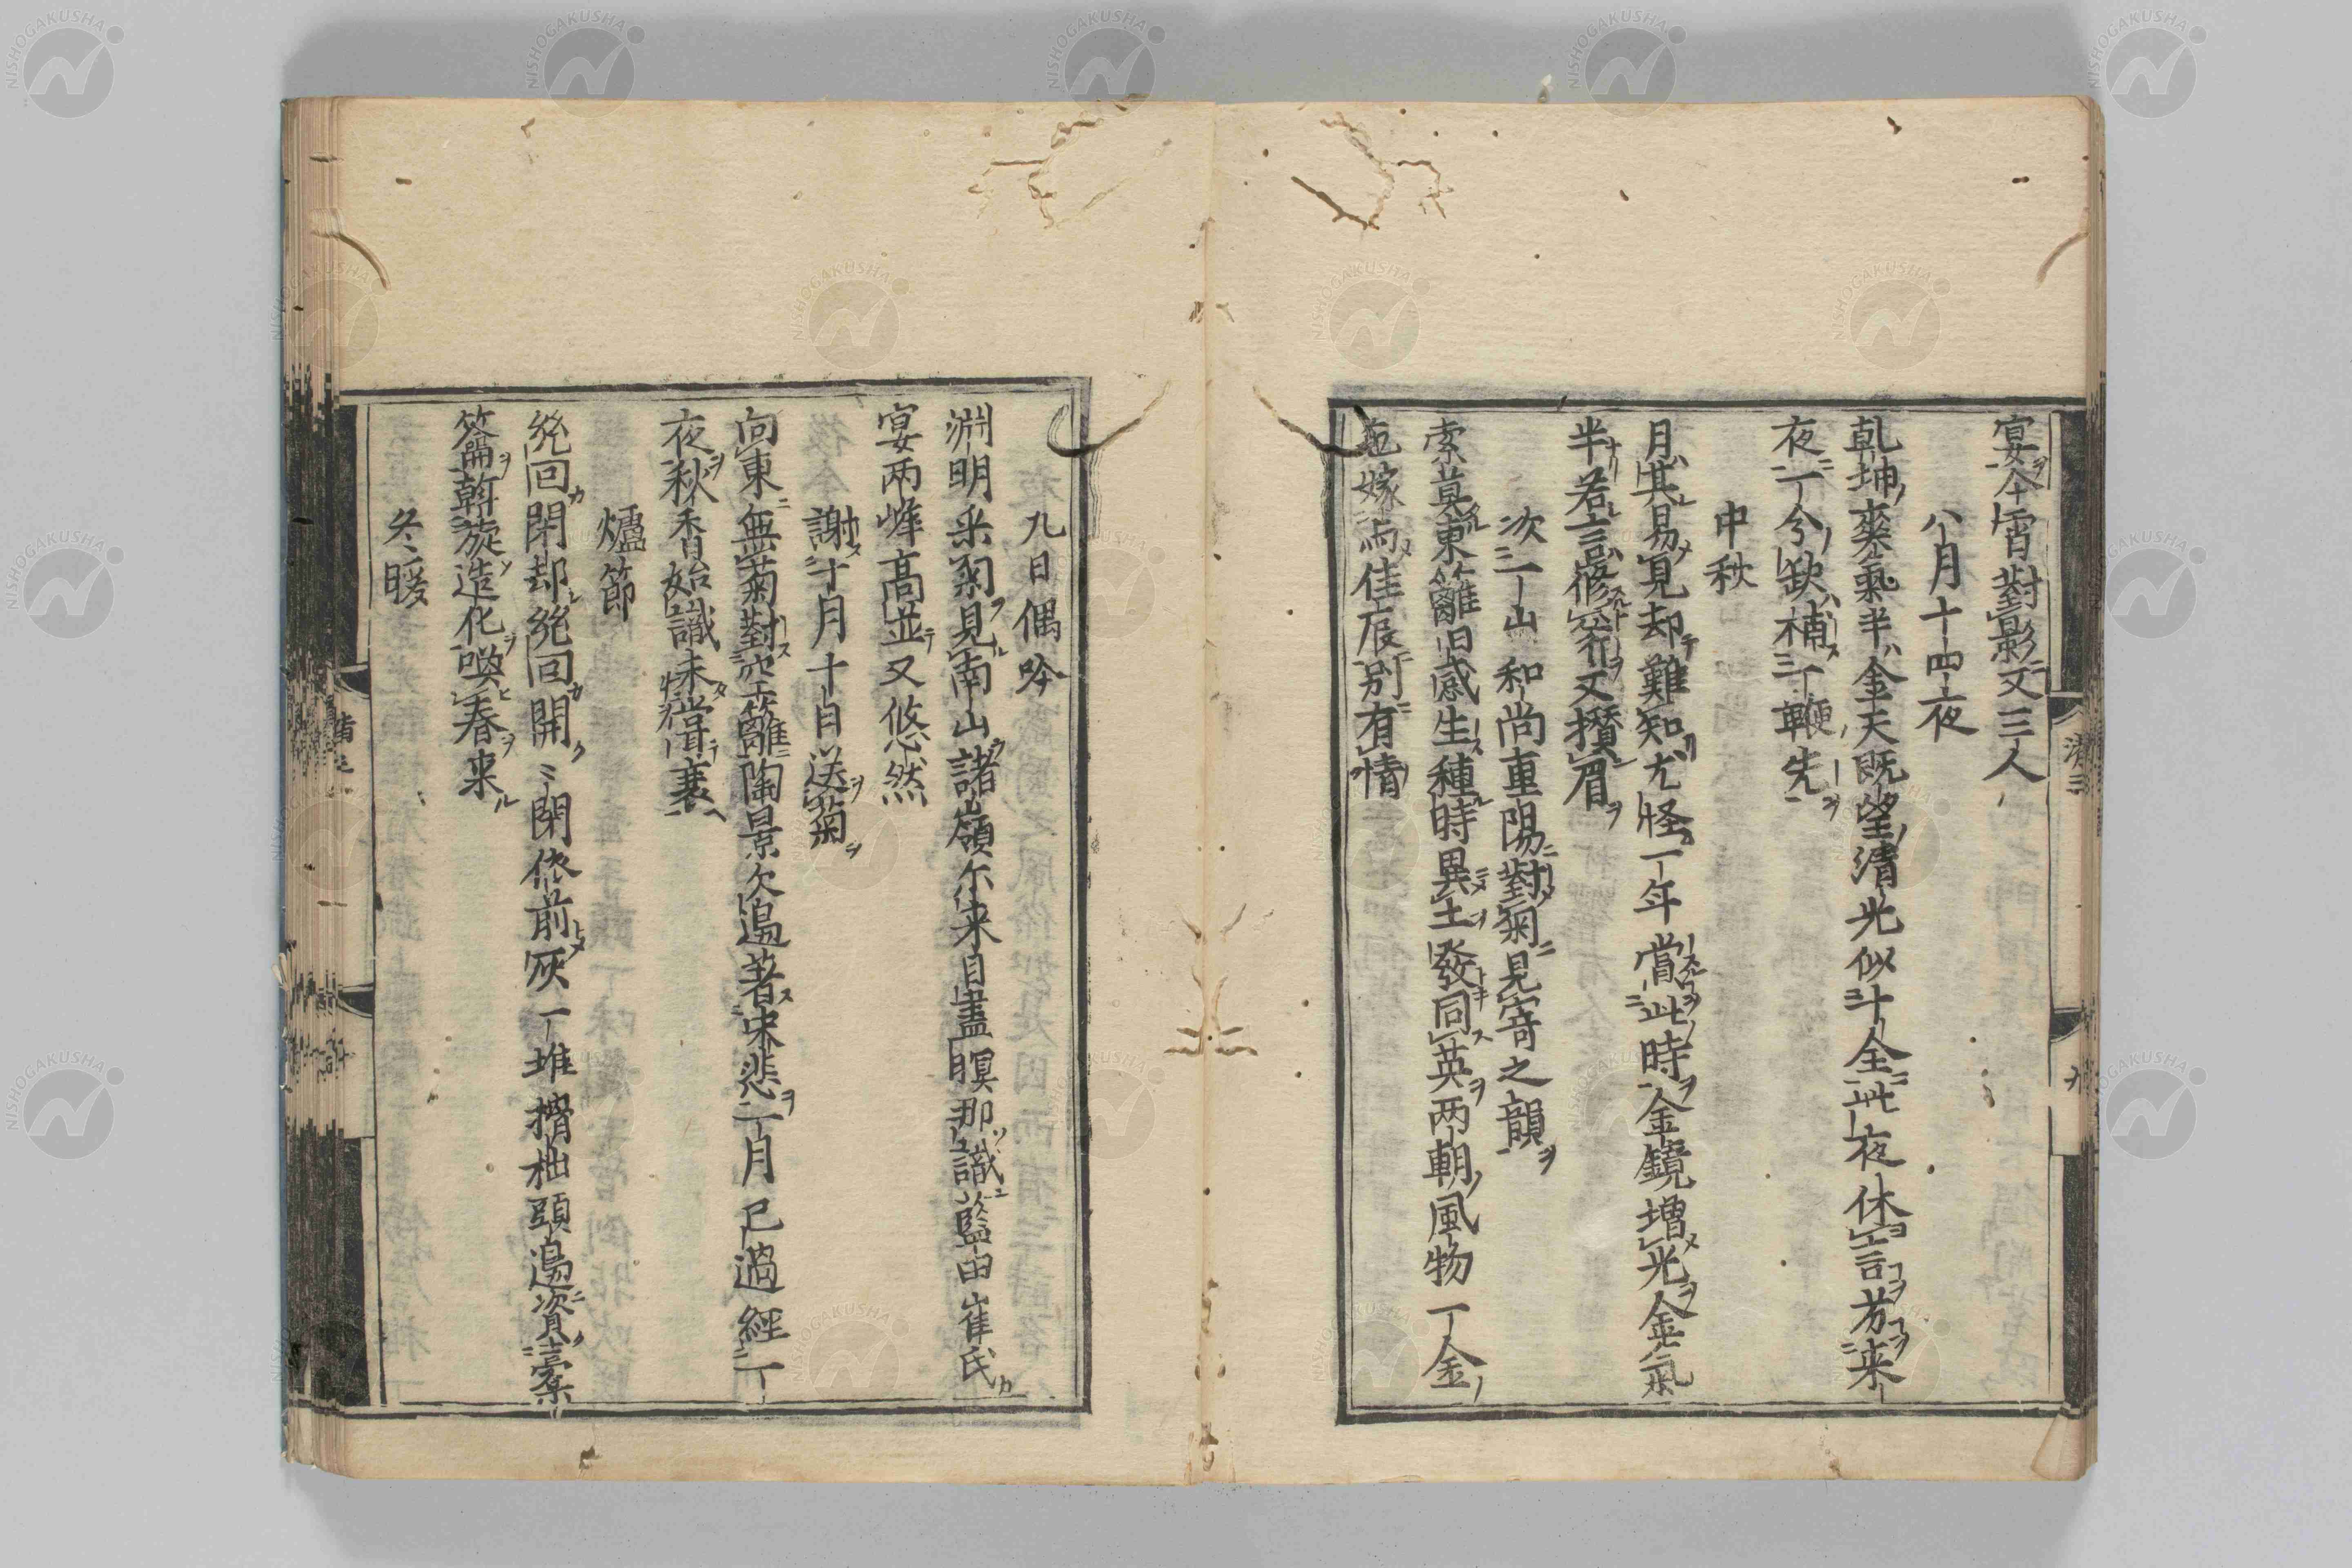 宴今宵對影又三人
八月十四夜
乾坤爽氣半金天既望清光似十全此夜休言芳来
夜一分缺補一鞭先
中秋
月其易見却難知尤怪一年當此時金鏡増光金氣
半若言修
又攅眉
次一山和尚重陽對菊見寄之韻
索莫東籬旧感生種時異土發同英両朝風物一金
嫁
佳辰別有情
九日偶吟
淵明采菊見南山諸嶺尓来自盡瞑那識藍田崔氏
宴両峰高並又悠然
謝十月十日送菊
向東無菊對空籬陶景欠邉著宋悲一月已過經一
夜秋香始識未
甞衰
爐節
纔回閉却纔回開〻閉依前灰一堆榾柮頭邉資橐
籥斡旋造化喚春来
冬暖
濟
九
NISHOGAKUSHA